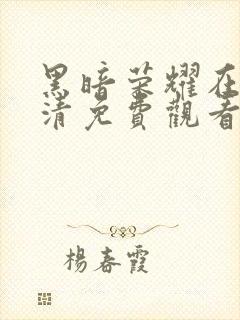 黑暗荣耀在
清免費觀看
楊春霞